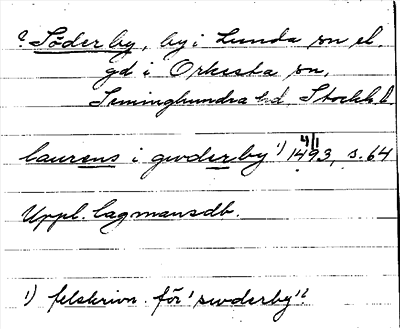 ? Söderby, by i Lunda sn el.
gd i Orkesta sn,
Seminghundra hd Stockh. l.
laurens i gwderby ¹) 4/1 1493, s. 64
Uppl. lagmansdb.
1) felskrivn. för 'swderby'?